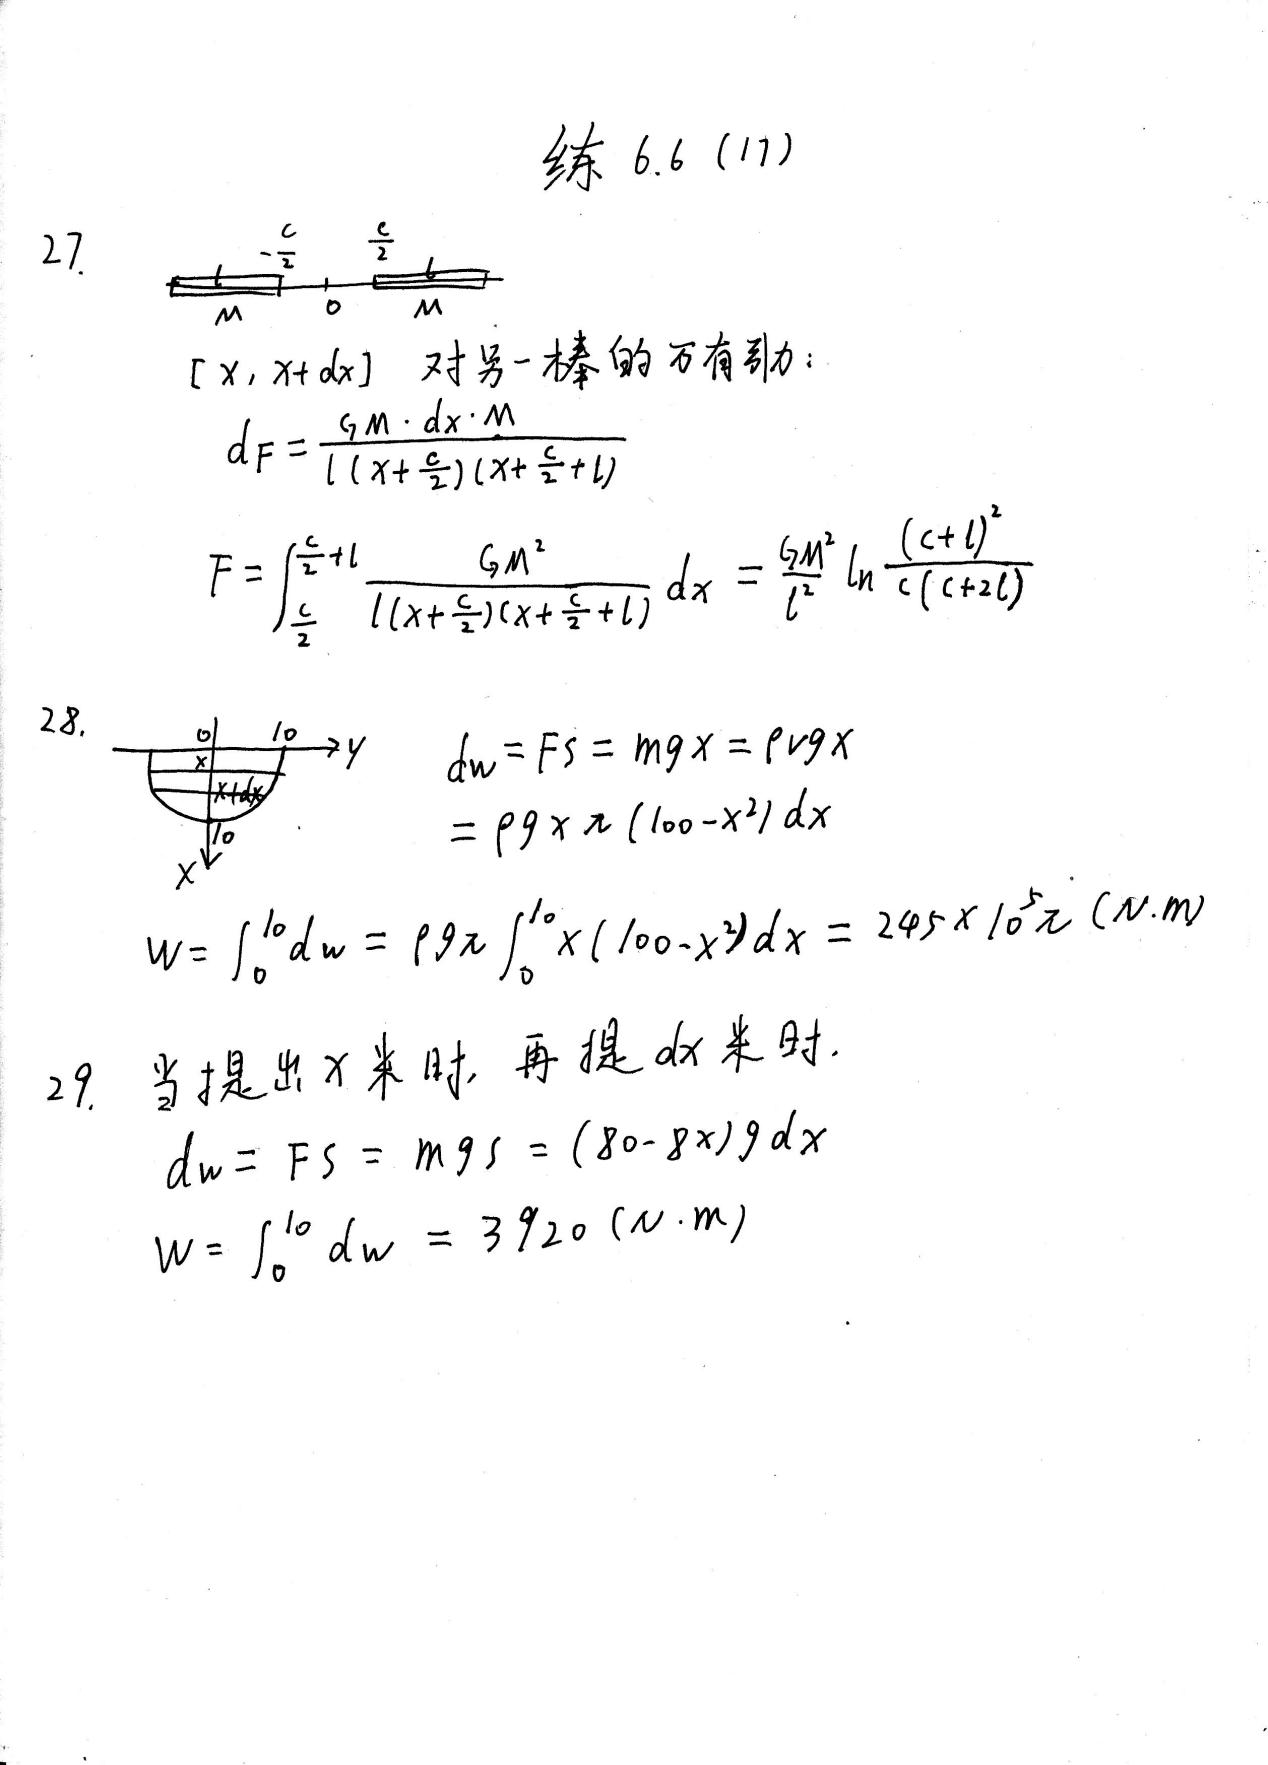 练 6.6 (17)
27.
-c/2 c/2
l l
M 0 M
[x, x+dx] 对另一棒的万有引力:
dF = GM·dx·M / l(x+c/2)(x+c/2+l)
F = ∫_{c/2}^{c/2+l} GM² / l(x+c/2)(x+c/2+l) dx = GM²/l² ln (c+l)²/c(c+2l)
28.
0 10 y
x
x+dx
10
x
dw = FS = mgx = ρvgx
= ρgxπ(100-x²)dx
W = ∫_0^10 dw = ρgπ ∫_0^10 x(100-x²)dx = 245×10⁵π (N.m)
29. 当提出x米时, 再提dx米时.
dw = FS = mgs = (80-8x)gdx
W = ∫_0^10 dw = 3920 (N·m)